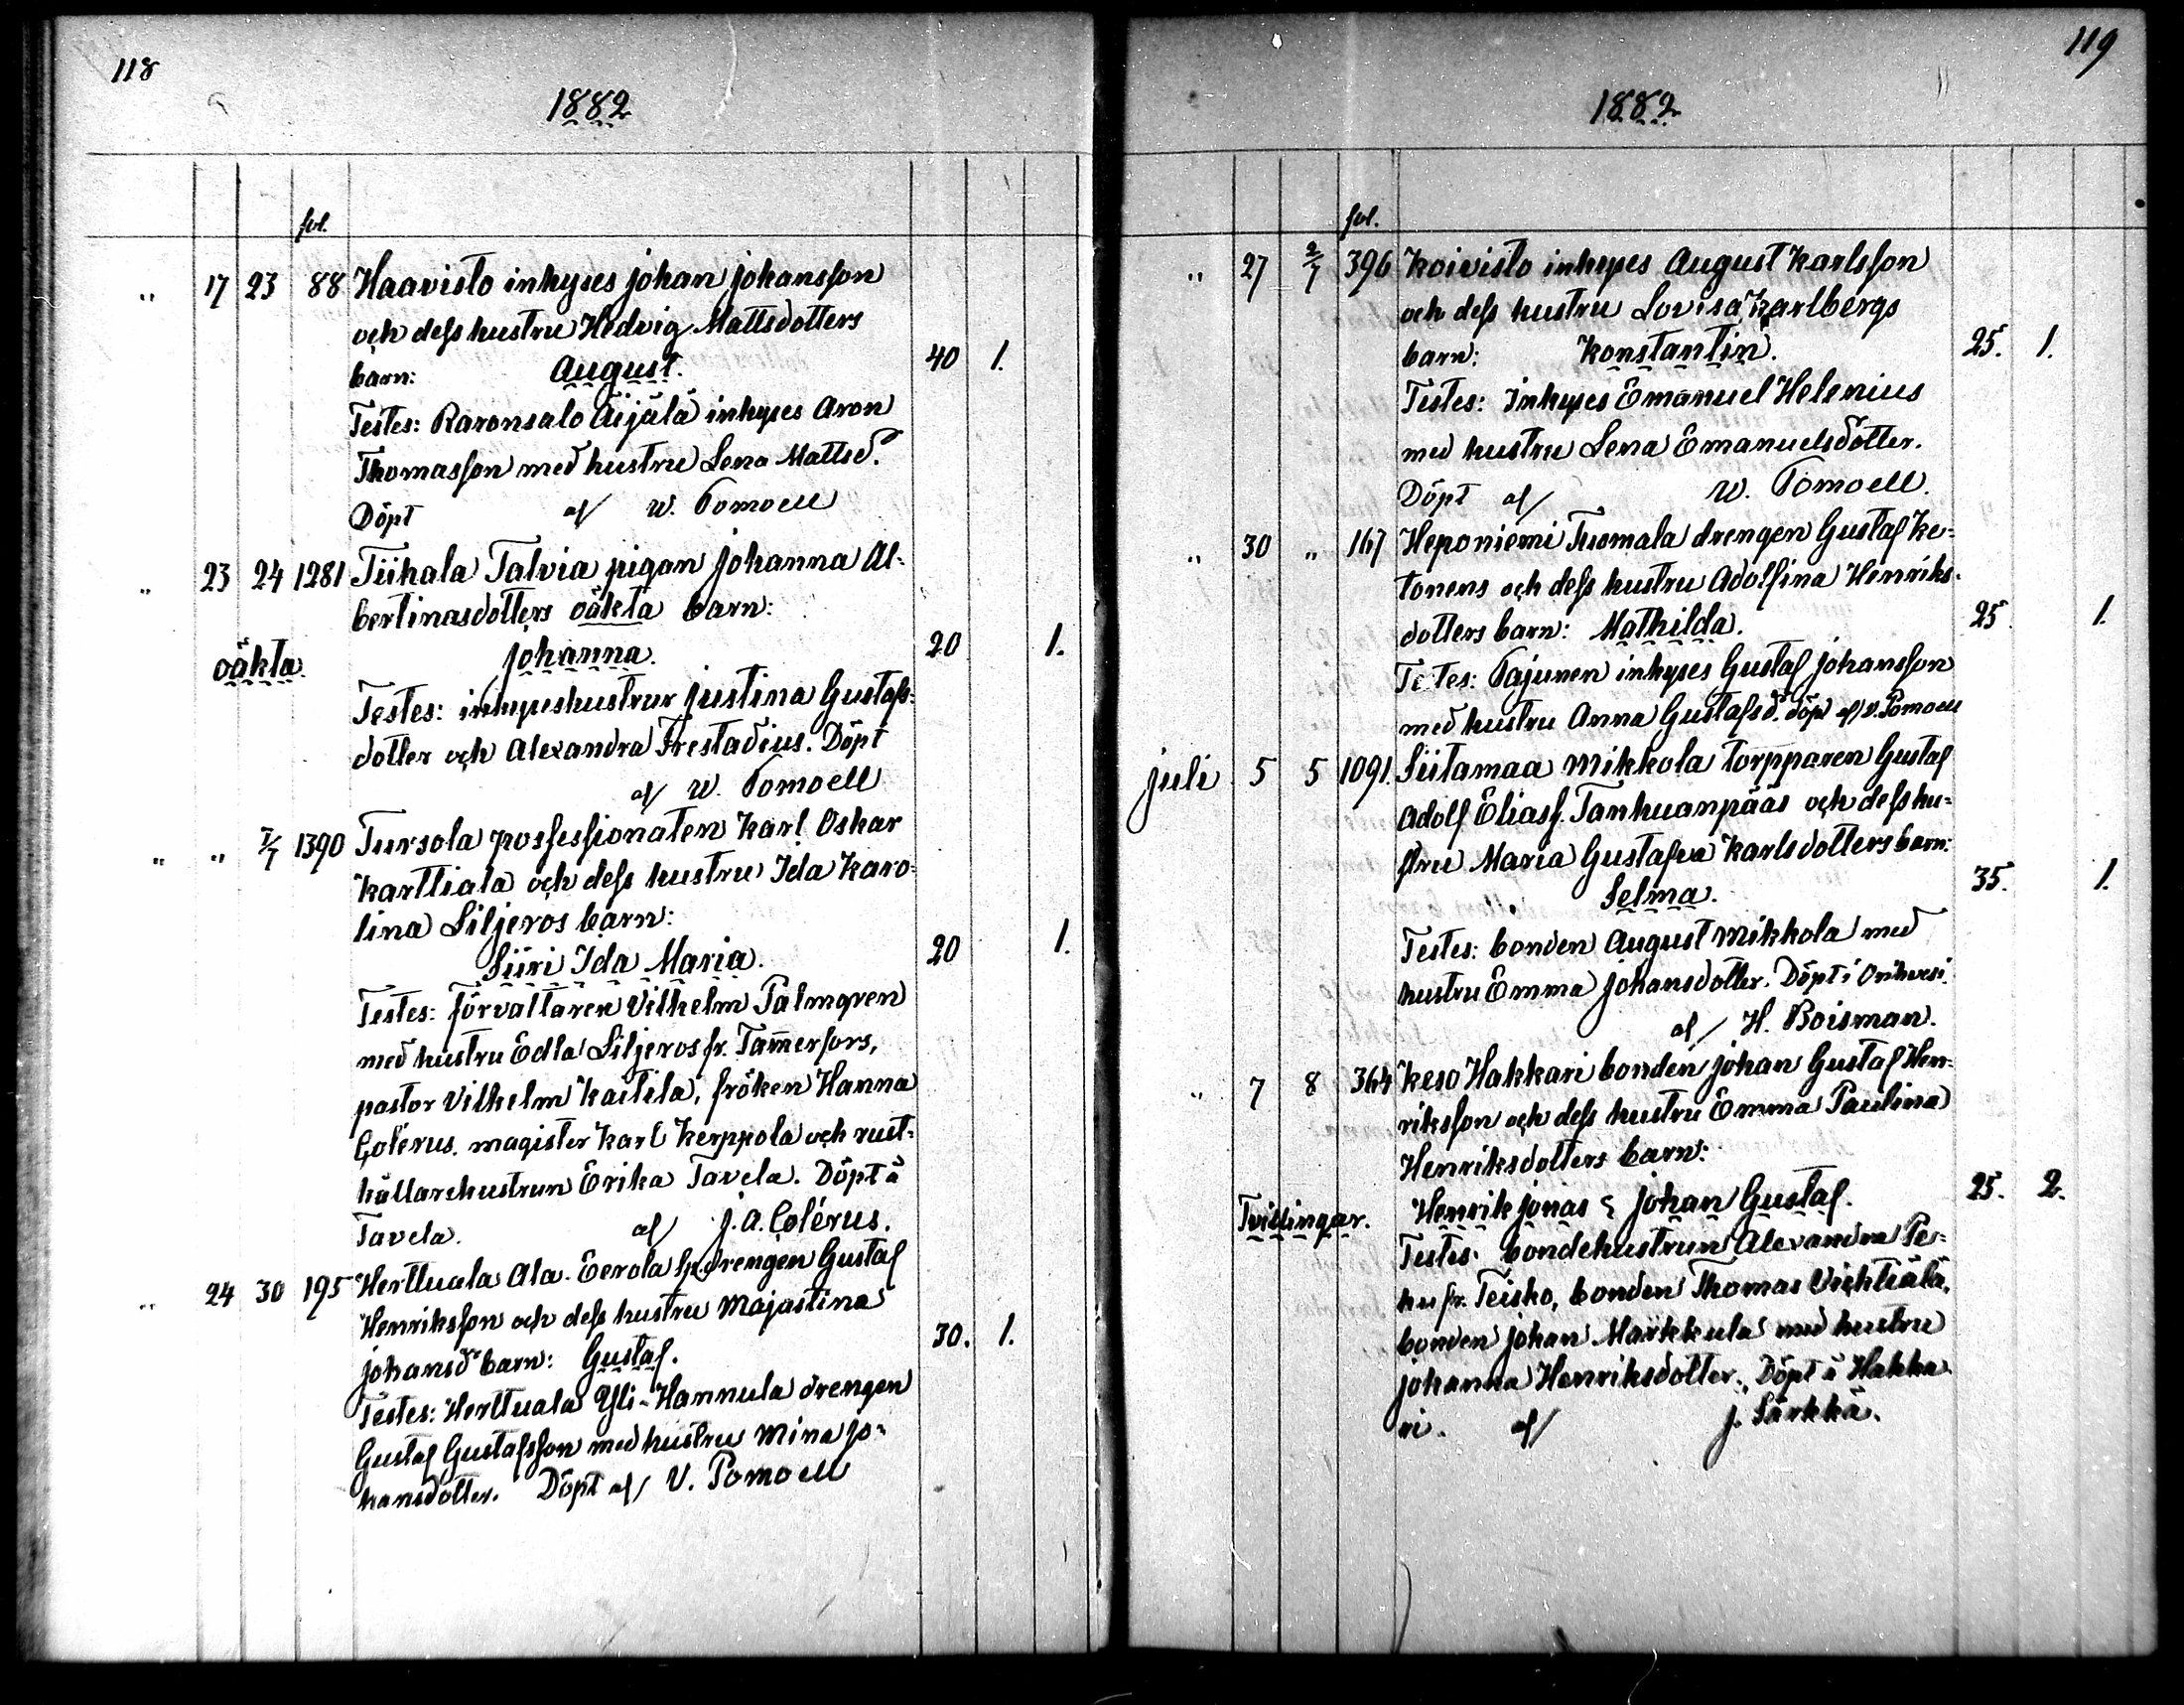 118
1882
fol.
„ 17 23 88 Haavisto inhyses Johan Johansson
och dess hustru Hedvig Mattsdotters
barn: August. 40 1.
Testes: Raronsalo Äijälä inhyses Aron
Thomasson med hustru Lena Mattsd.
Döpt af W. Pomoell
„ 23 24 1281 Tiihala Talvia pigan Johanna Al-
bertinasdotters oäkta barn:
oäkta. Johanna. 20 1.
Testes: inhyseshustrur Justina Gustafs-
dotter och Alexandra Frestadius. Döpt
af W. Pomoell
„ „ 7/7 1390 Tursola possessionaten Karl Oskar
Karttiala och dess hustru Ida Karo-
lina Liljeros barn:
Siiri Ida Maria. 20 1.
Testes: förvaltaren Vilhelm Palmqren
med hustru Edla Liljeros fr. Tam̅erfors,
pastor Vilhelm Kaitila, fröken Hanna
Colérus, magister Karl Kerppola och rust-
hållarehustrun Erika Tavela. Döpt å
Tavela. af J. A. Colérus.
„ 24 30 195 Herttuala Ala-Eerola drengen Gustaf
Henriksson och dess hustru Majastina
Johansd barn: Gustaf. 30. 1.
Testes: Herttuala Yli-Hannula drengen
Gustaf Gustafsson med hustru Mina Jo-
hansdotter. Döpt af V. Pomoell
119
1882
fol.
„ 27 2/7 396 Koivisto inhyses August Karlsson
och dess hustru Lovisa Karlbergs
barn: Konstantin. 25. 1.
Testes: Inhyses Emanuel Helenius
med hustru Lena Emanuelsdotter.
Döpt af W. Pomoell.
„ 30 „ 167 Heponiemi Tuomala drengen Gustaf Ke-
tonens och dess hustru Adolfina Henriks-
dotters barn: Mathilda. 25 1.
Testes: Pajunen inhyses Gustaf Johansson
med hustru Anna Gustafsd. döpt af V. Pomoell
Juli 5 5 1091. Siitamaa Mikkola torpparen Gustaf
Adolf Eliass. Tanhuanpääs och dess hu-
stru Maria Gustafva Karlsdotters barn:
Selma. 35. 1.
Testes: bonden August Mikkola med
hustru Emma Johansdotter. Döpt i Orihvesi.
af H. Boisman.
„ 7 8 364 Keso Hakkari bonden Johan Gustaf Hen-
riksson och dess hustru Emma Paulina
Henriksdotters barn:
Tvillingar. Henrik Jonas & Johan Gustaf. 25. 2.
Testes: bondehustrun Alexandra Pe-
hu fr. Teisko, bonden Thomas Viehtiälä,
bonden Johan Markkula med hustru
Johanna Henriksdotter. Döpt å Hakka-
ri. af J. Särkkä.